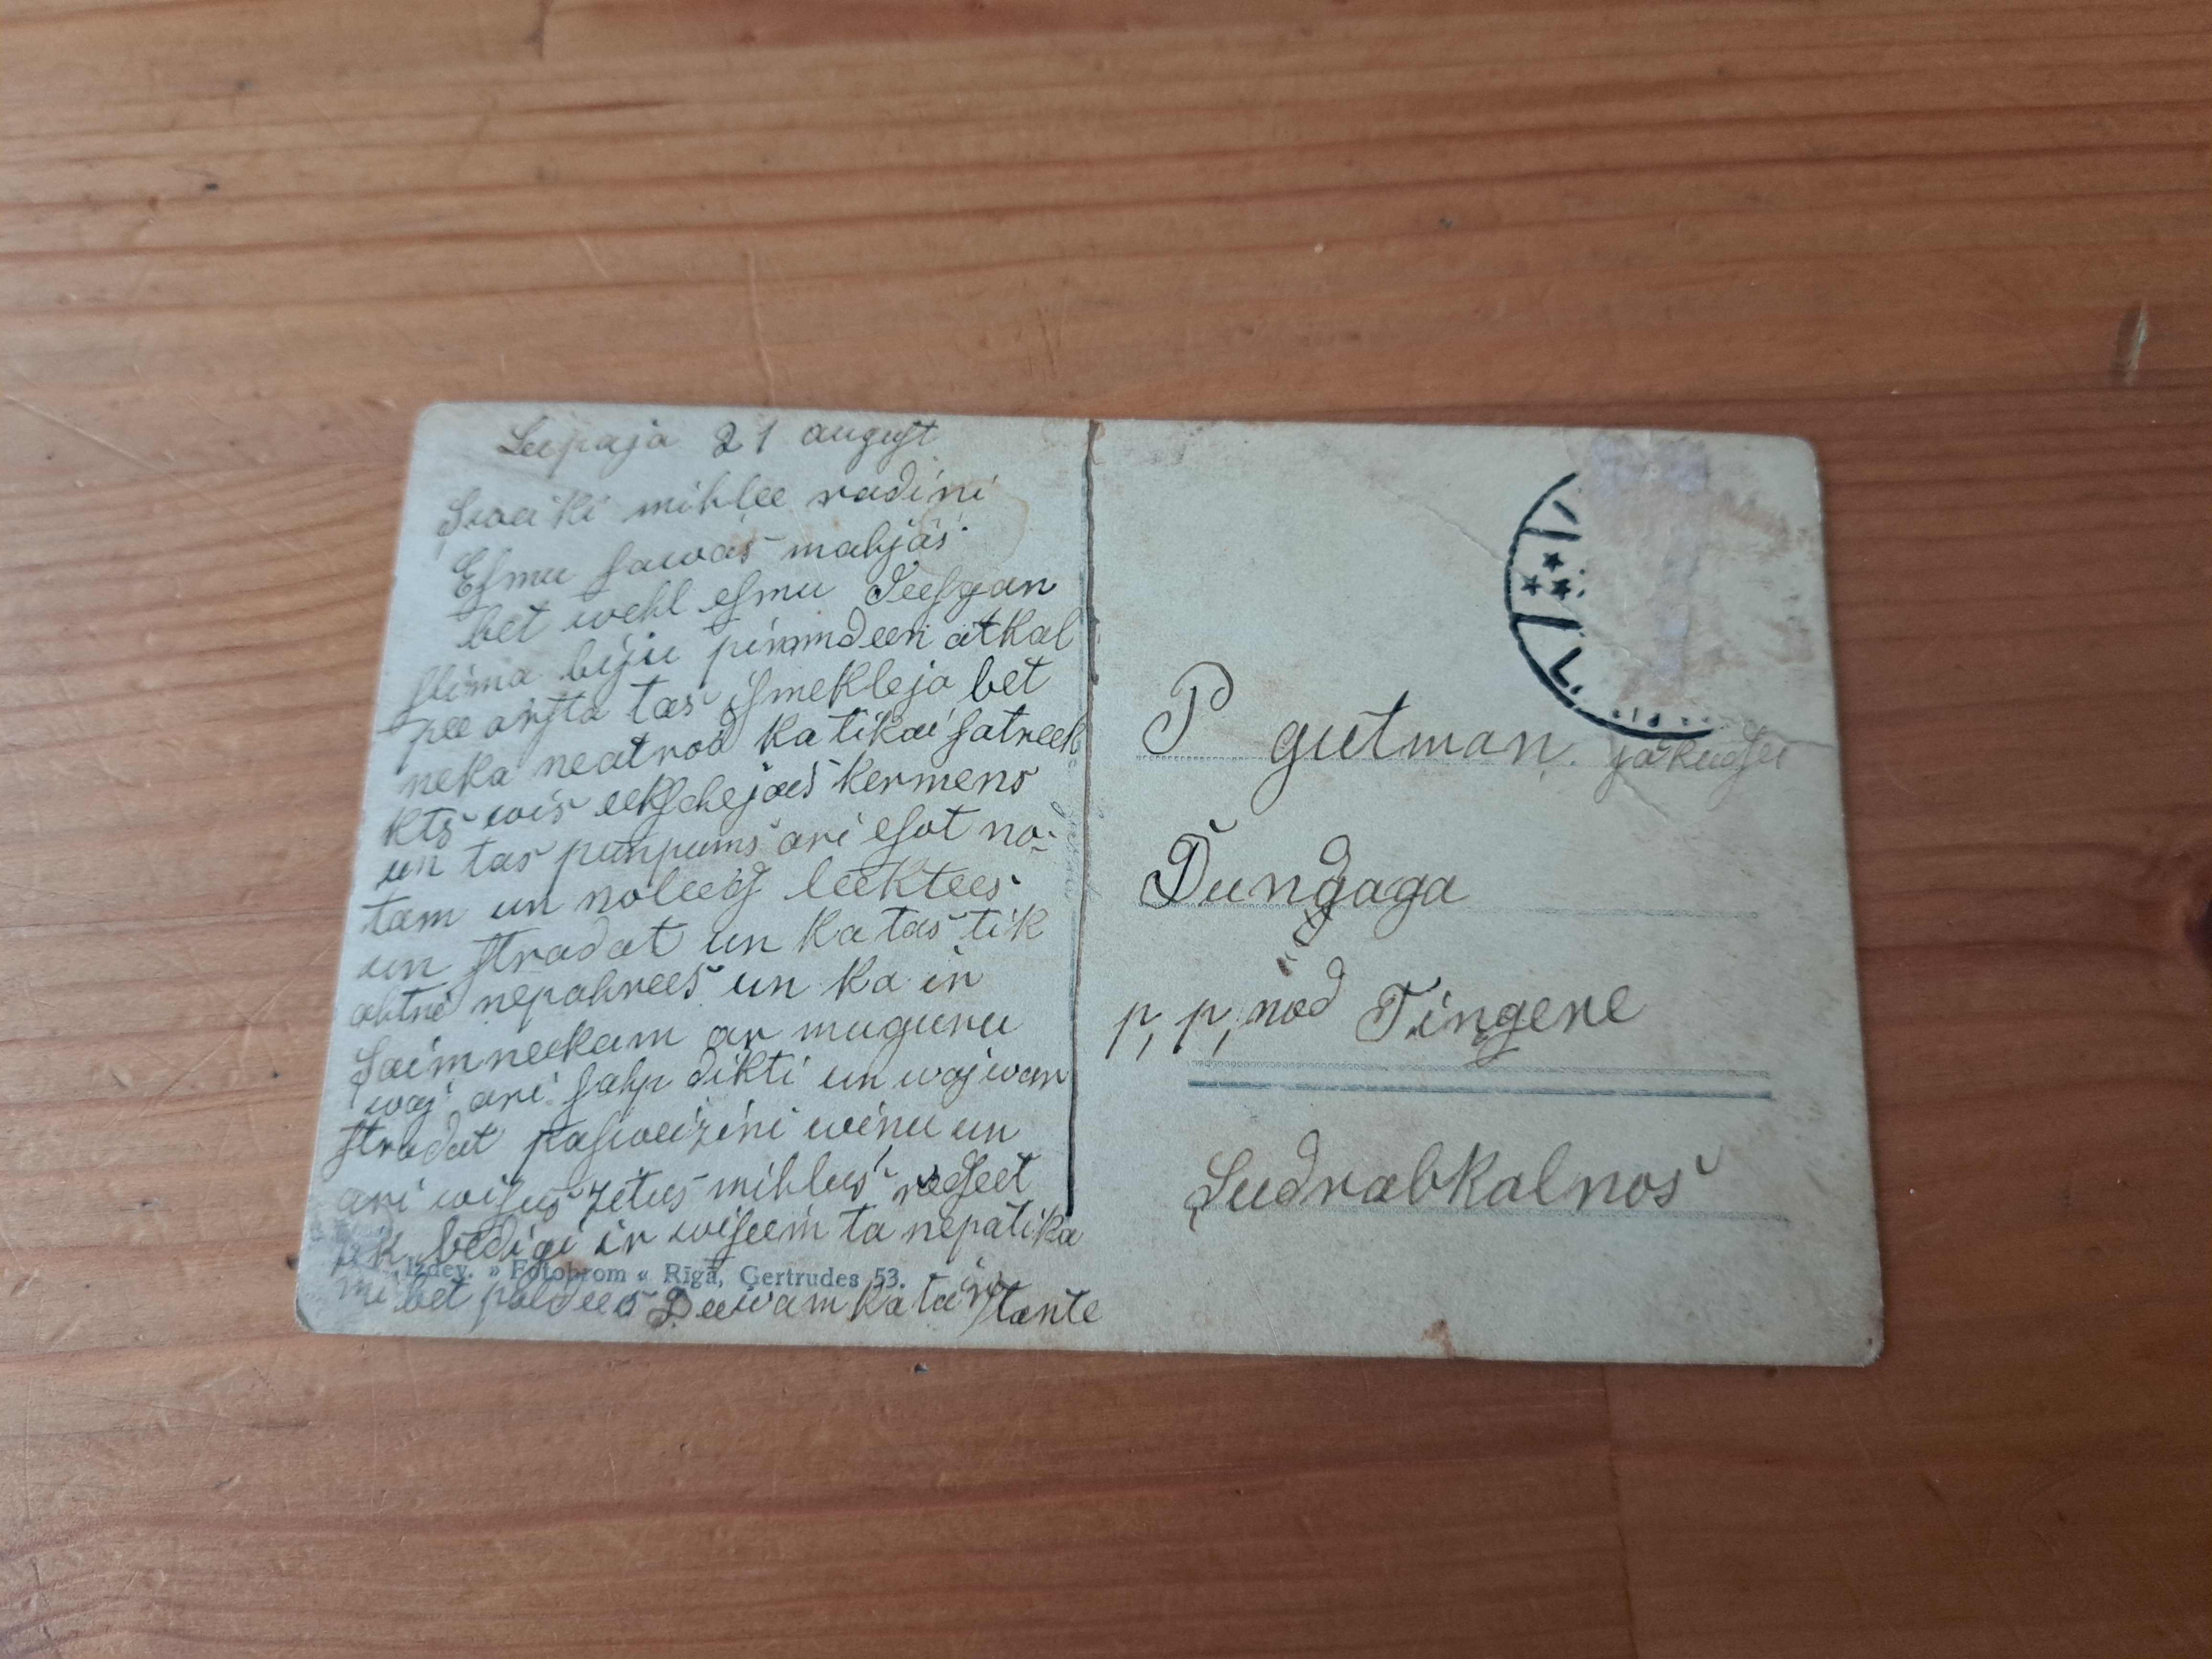 Leepaja 21 august
Sweiki mihlee radini
Esmu sawās mahjās
bet wehl esmu Seesgan
slima biju pirmdeen atkal
pee arsta tas ismekleja bet
neka neatrod ka tikai satreek
kts wis eekschejais kermens
un tas punpums ari esot no
tam un noleeg leektees
un stradat un ka tas tik
ahtri nepahrees un ka ir
Saimneekam ar muguru
waj ari sahp dikti un waj war
stradat pasweizini winu un
ari wisus zitus mihlus redseet
tik bedigi ir wiseem ta nepatika
mi bet paldees Deewam ka ta ir tante
Izdev. » Fotobrom « Rīgā, Ģertrudes 53.
P gutman.
Dungaga
p, p, nod Tingere
Sudrabkalnos